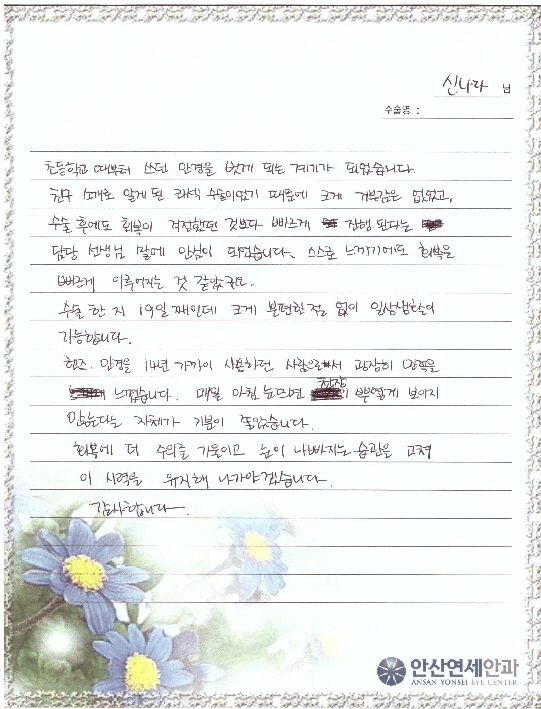 신나라 님
수술명 :
초등학교 때부터 쓰던 안경을 벗게 되는 계기가 되었습니다.
친구 소개로 알게 된 라식 수술이었기 때문에 크게 거부감은 없었고,
수술 후에도 회복이 걱정했던 것보다 빠르게 진행 된다는
담당 선생님 말에 안심이 되었습니다. 스스로 느끼기에도 회복을
빠르게 이루어지는 것 같았구요.
수술 한 지 19일 째인데 크게 불편한 점 없이 일상생활이
가능합니다.
렌즈. 안경을 14년 가까이 사용하던 사람으로써 굉장히 만족을
느꼈습니다. 매일 아침 눈뜨면 천장이 뿌옇게 보이지
않는다는 자체가 기분이 좋았습니다.
회복에 더 주의를 기울이고 눈이 나빠지는 습관을 고쳐
이 시력을 유지해 나가야겠습니다.
감사합니다.
안산연세안과
ANSAN YONSEI EYE CENTER